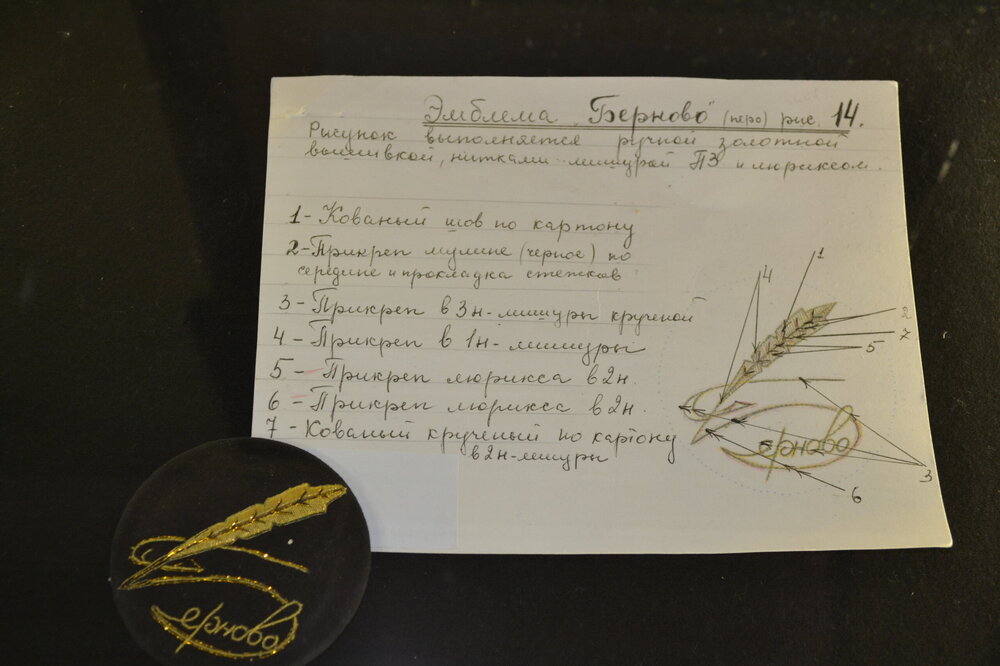 Эмблема „Берново" (перо) рис. 14.
Рисунок выполняется ручной золотной
вышивкой, нитками мишурой ПЗ и люриксом.
1 - Кованый шов по картону
2 - Прикреп мулине (черное) по
середине и прокладка стежков
3 - Прикреп в 3н - мишуры крученой
4 - Прикреп в 1н - мишуры
5 - Прикреп люрикса в 2н.
6 - Прикреп люрикса в 2н.
7 - Кованый крученый по картону
в 2н - мишуры
1
4
2
7
5
ерново
3
6
ерново